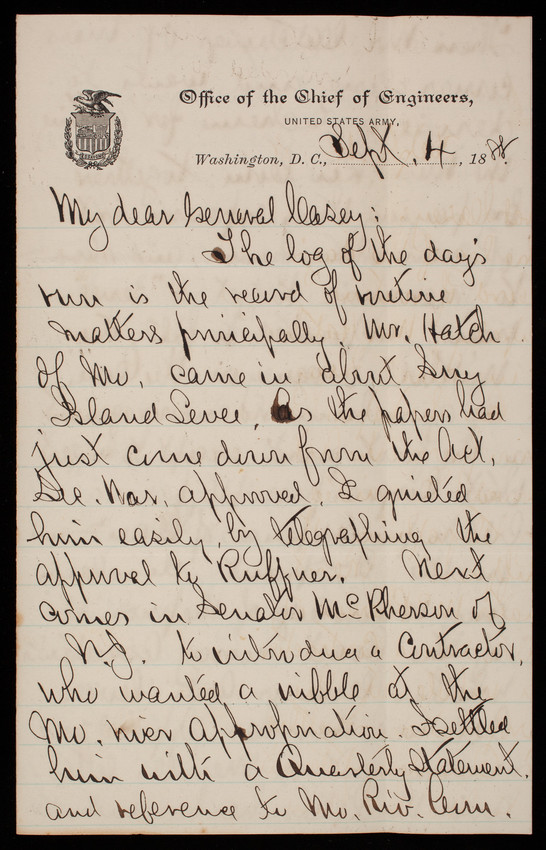 Office of the Chief of Engineers,
UNITED STATES ARMY,
Washington, D. C., Sept. 4, 1888.
My dear General Casey:
The log of the day's
run is the record of routine
matters principally. Mr. Hatch
of Mo. came in about
Island Levee. As the papers had
just come down from the Act.
Sec. War, approved, I quieted
him easily, by telegraphing the
approval to Ruffner. Next
comes in Senator McPherson of
N.J. to introduce a Contractor,
who wanted a nibble at the
Mo. river appropriation. I settled
him with a Quarterly Statement,
and reference to Mo. Riv. Com.